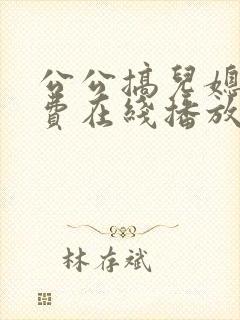 公公搞兒媳
費在綫播放
林存斌